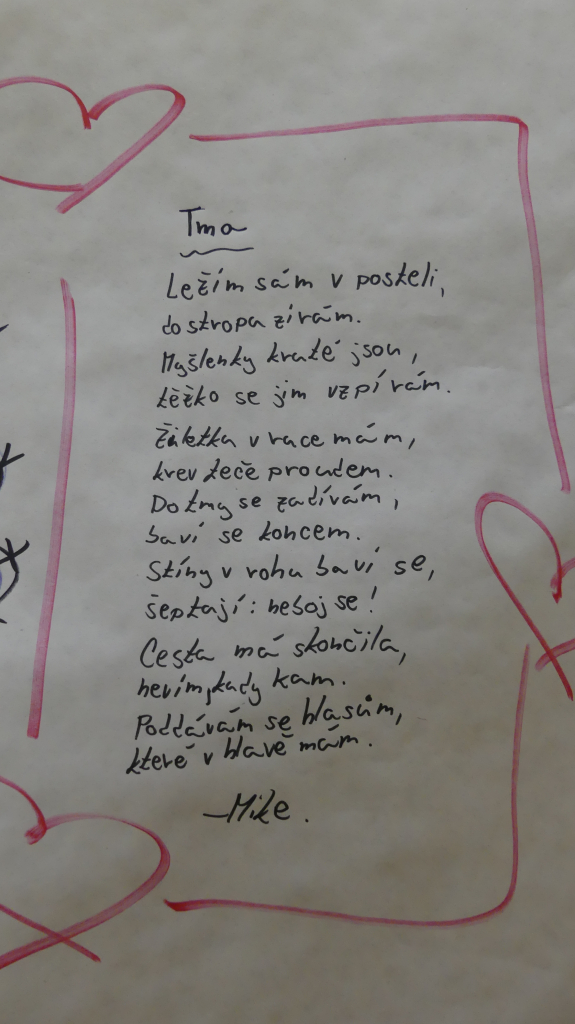 Tma
Ležím sám v posteli,
do stropa zírám.
Myšlenky kruté jsou,
těžko se jim vzpírám.
Žiletka v ruce mám,
krev teče proudem.
Do tmy se zadívám,
baví se koncem.
Stíny v rohu baví se,
šeptají: neboj se!
Cesta má skončila,
nevím, kady kam.
Poddávám se hlasům,
které v hlavě mám.
—Mike.